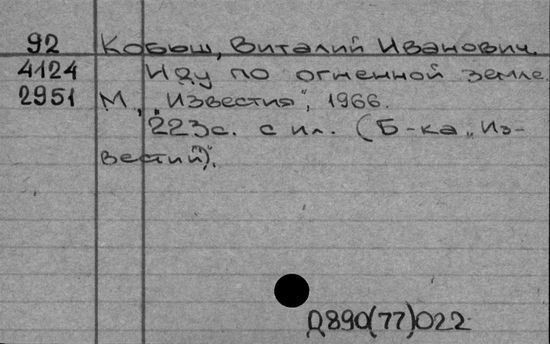 92 Кобыш, Виталий Иванович.
4124 Иду по огненной земле.
2951 М., „Известия", 1966.
223с. с ил. (Б-ка „Из-
вестий").
Д890(77)022